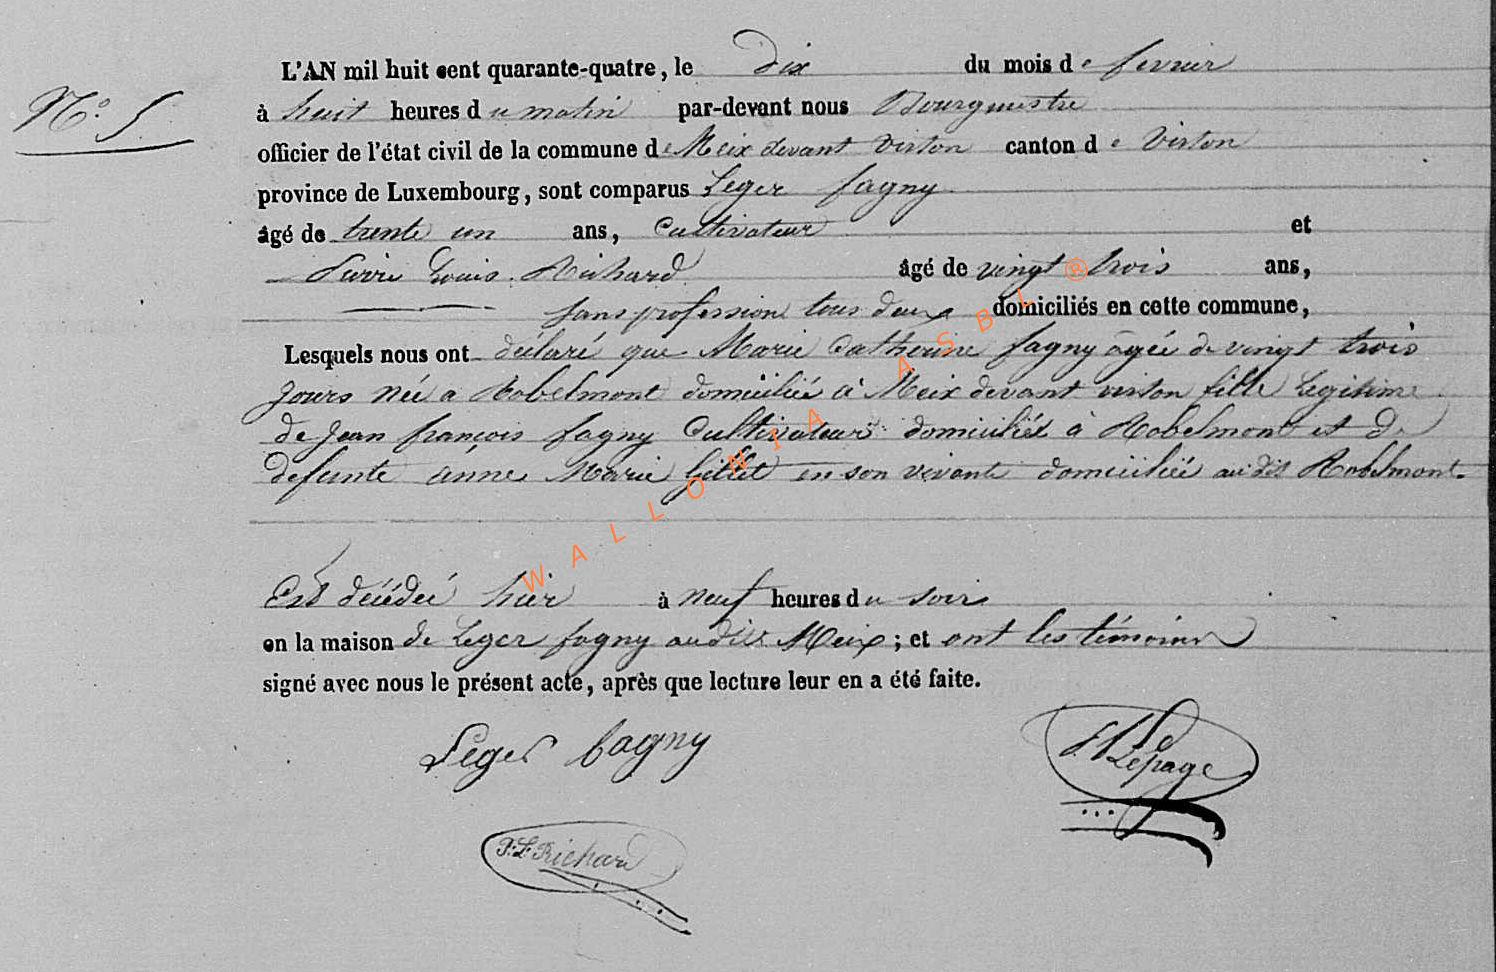 N° 5
L'AN mil huit cent quarante-quatre, le dix du mois de fevrier
à huit heures du matin par-devant nous Bourgmestre
officier de l'état civil de la commune de Meix devant Virton canton de Virton
province de Luxembourg, sont comparus Leger fagny
âgé de trente un ans, Cultivateur et
Pierre Louis Richard âgé de vingt trois ans,
sans profession tous deux domiciliés en cette commune,
Lesquels nous ont déclaré que Marie Catherine fagny agée de vingt trois
jours née a Robelmont domiciliée à Meix devant virton fille Legitime
de Jean françois fagny Cultivateur domicilié à Robelmont et de
defunte anne Marie gillet en son vivante domiciliée audit Robelmont.
Est décédée hier à neuf heures du soir
en la maison de Leger fagny audit Meix; et ont les témoins
signé avec nous le présent acte, après que lecture leur en a été faite.
Leger fagny
Lepage
P. L. Richard
WALLONIA ASBL ®